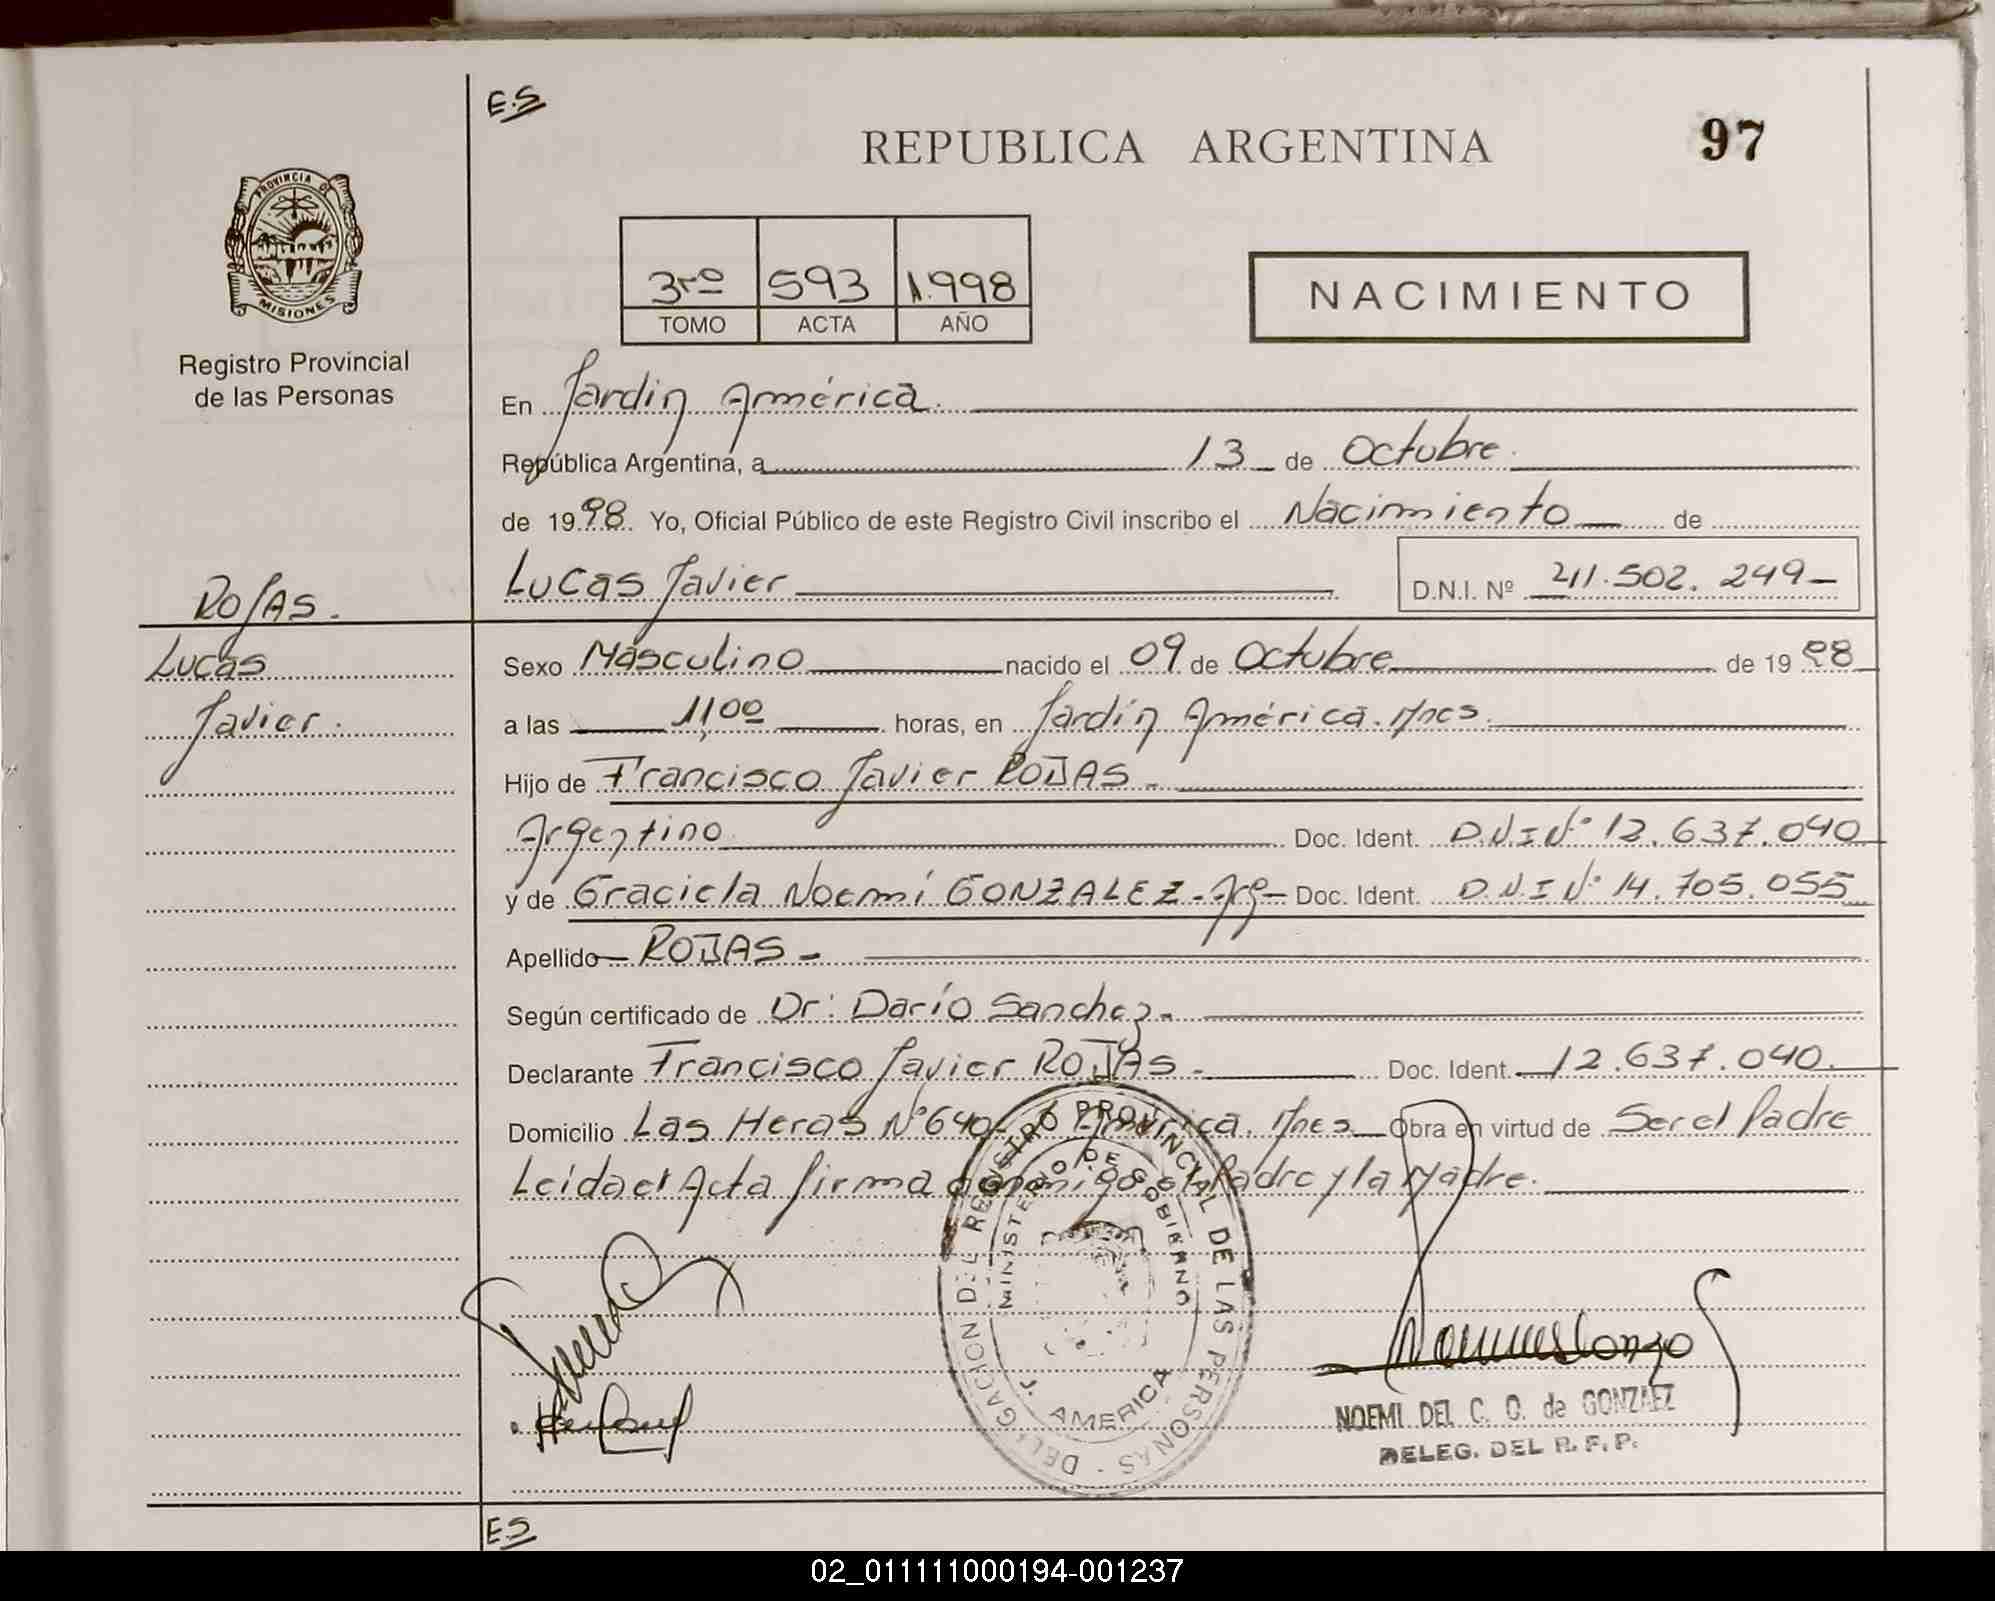 E.S
REPUBLICA ARGENTINA
97
PROVINCIA DE
MISIONES
Registro Provincial
de las Personas
3ro 593 1.998
TOMO ACTA AÑO
NACIMIENTO
En Jardín América.
República Argentina, a 13 de Octubre.
de 1998. Yo, Oficial Público de este Registro Civil inscribo el Nacimiento de
Lucas Javier D.N.I. Nº 41.502.249
ROJAS.
Lucas
Javier.
Sexo Masculino nacido el 09 de Octubre de 1998
a las 11,00 horas, en Jardín América. Mnes.
Hijo de Francisco Javier ROJAS.
Argentino Doc. Ident. D.N.I Nº 12.637.040
y de Graciela Noemí GONZALEZ - Arg - Doc. Ident. D.N.I Nº 14.705.055
Apellido ROJAS
Según certificado de Dr: Darío Sanchez
Declarante Francisco Javier ROJAS Doc. Ident. 12.637.040.
Domicilio Las Heras Nº 640 América. Mnes Obra en virtud de Ser el Padre
Leida el Acta firma conmigo el Padre y la Madre.
DELEGACION DEL REGISTRO PROVINCIAL DE LAS PERSONAS
MINISTERIO DE GOBIERNO
J. AMERICA
NOEMI DEL C. O. de GONZALEZ
DELEG. DEL R. P. P.
E.S
02_011111000194-001237